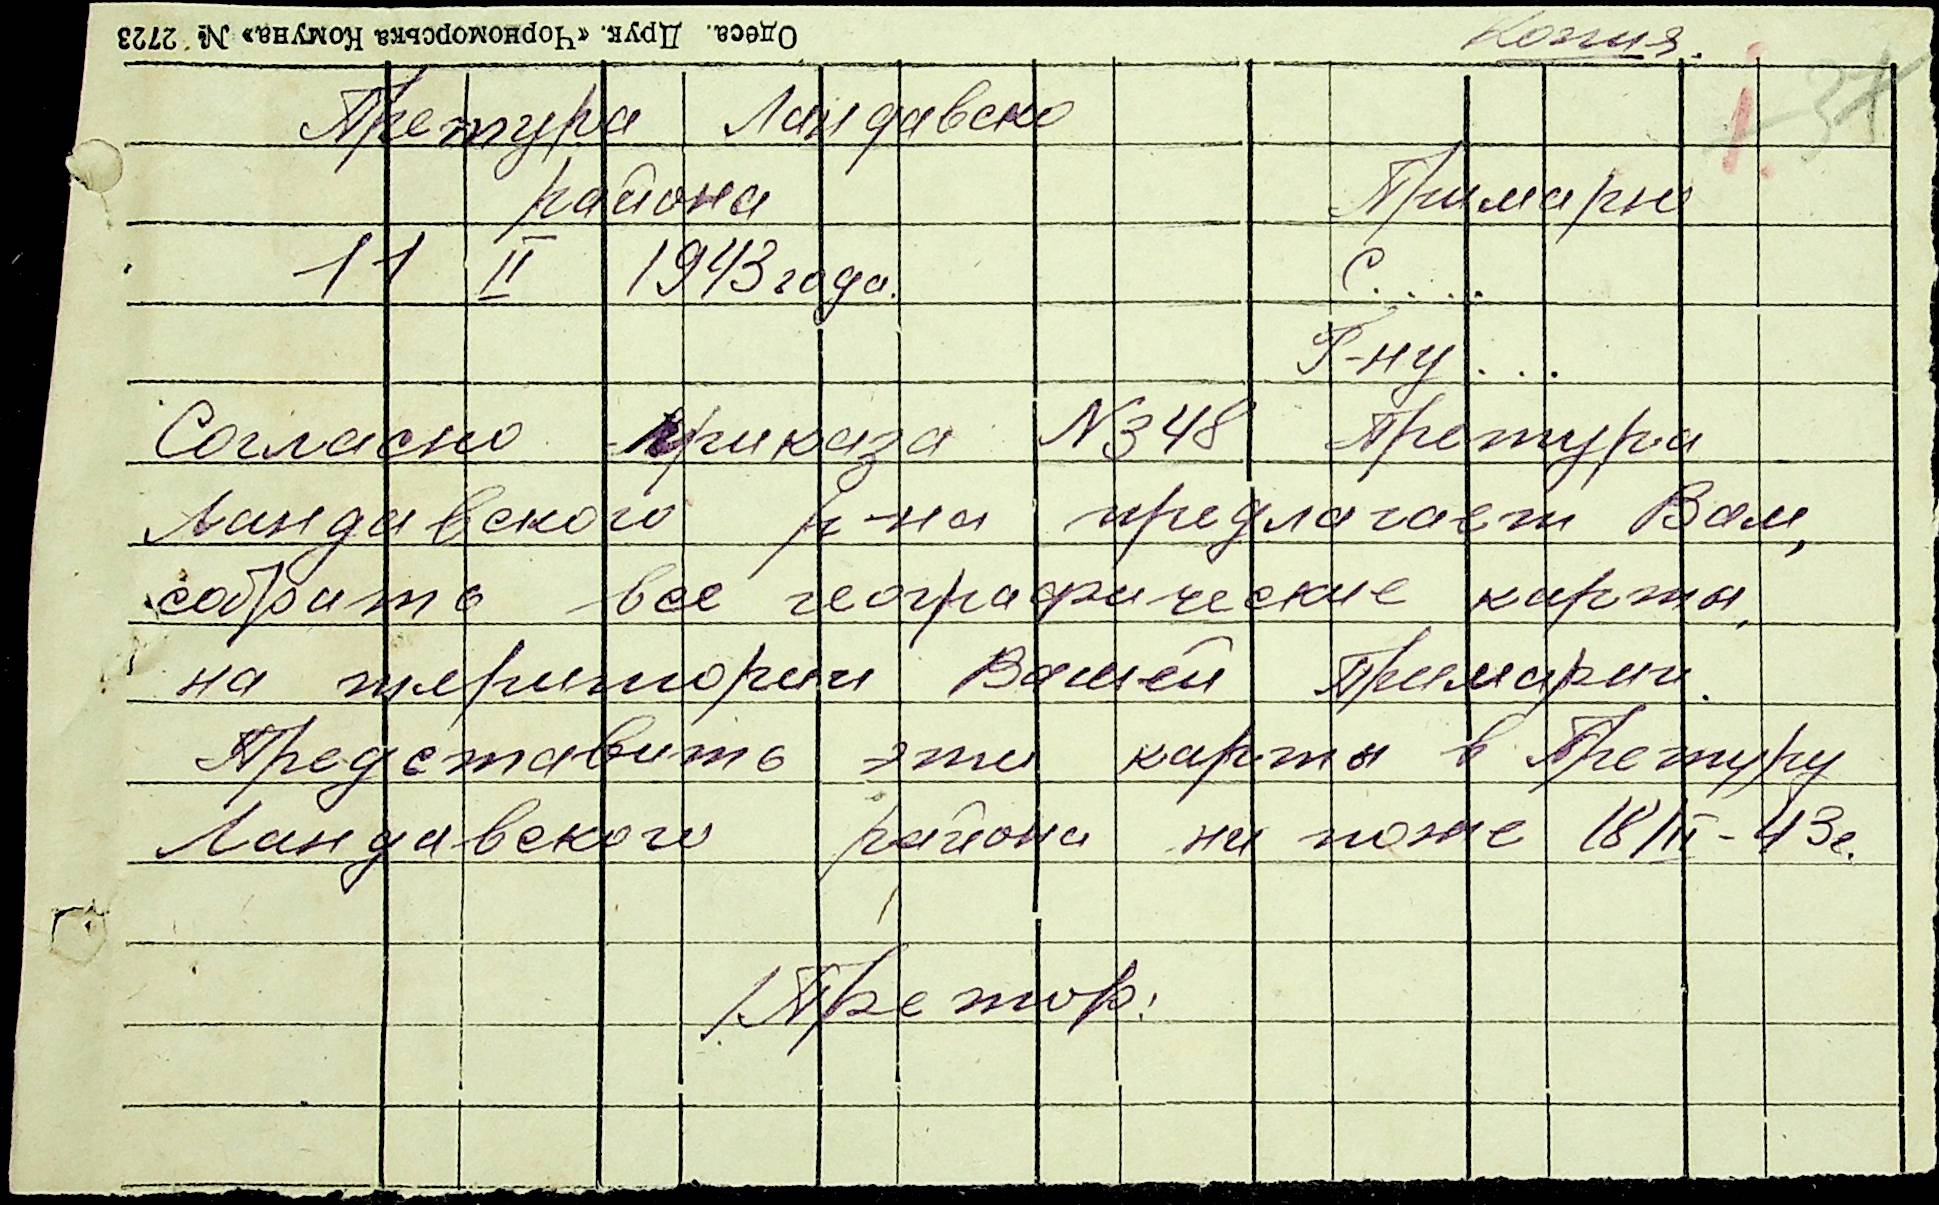 Одеса. Друк. «Чорноморська Комуна» № 2723
Копия.
37
Претура Ландавско
района
Примарю
11 II 1943 года.
С. . . .
Г-ну . . .
Согласно приказа N348 Претура
Ландавского р-на предлагает Вам,
собрать все географические карты,
на територии Вашей Примарии.
Представить эти карты в Претуру
Ландавского района ни позже 18/III-43г.
/Претор: